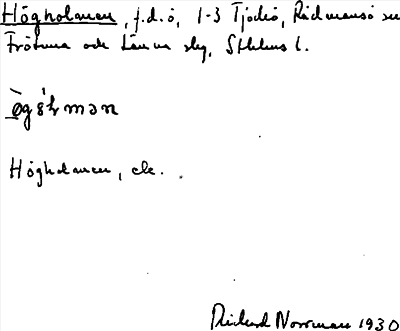 Högholmen, f.d.ö, 1-3 Tjockö, Rådmansö sn
Frötuna och Länna slg, Sthlms l.
ø̀gɜ́ɫmən
Högholmen, ek.
Rickard Norrman 1930